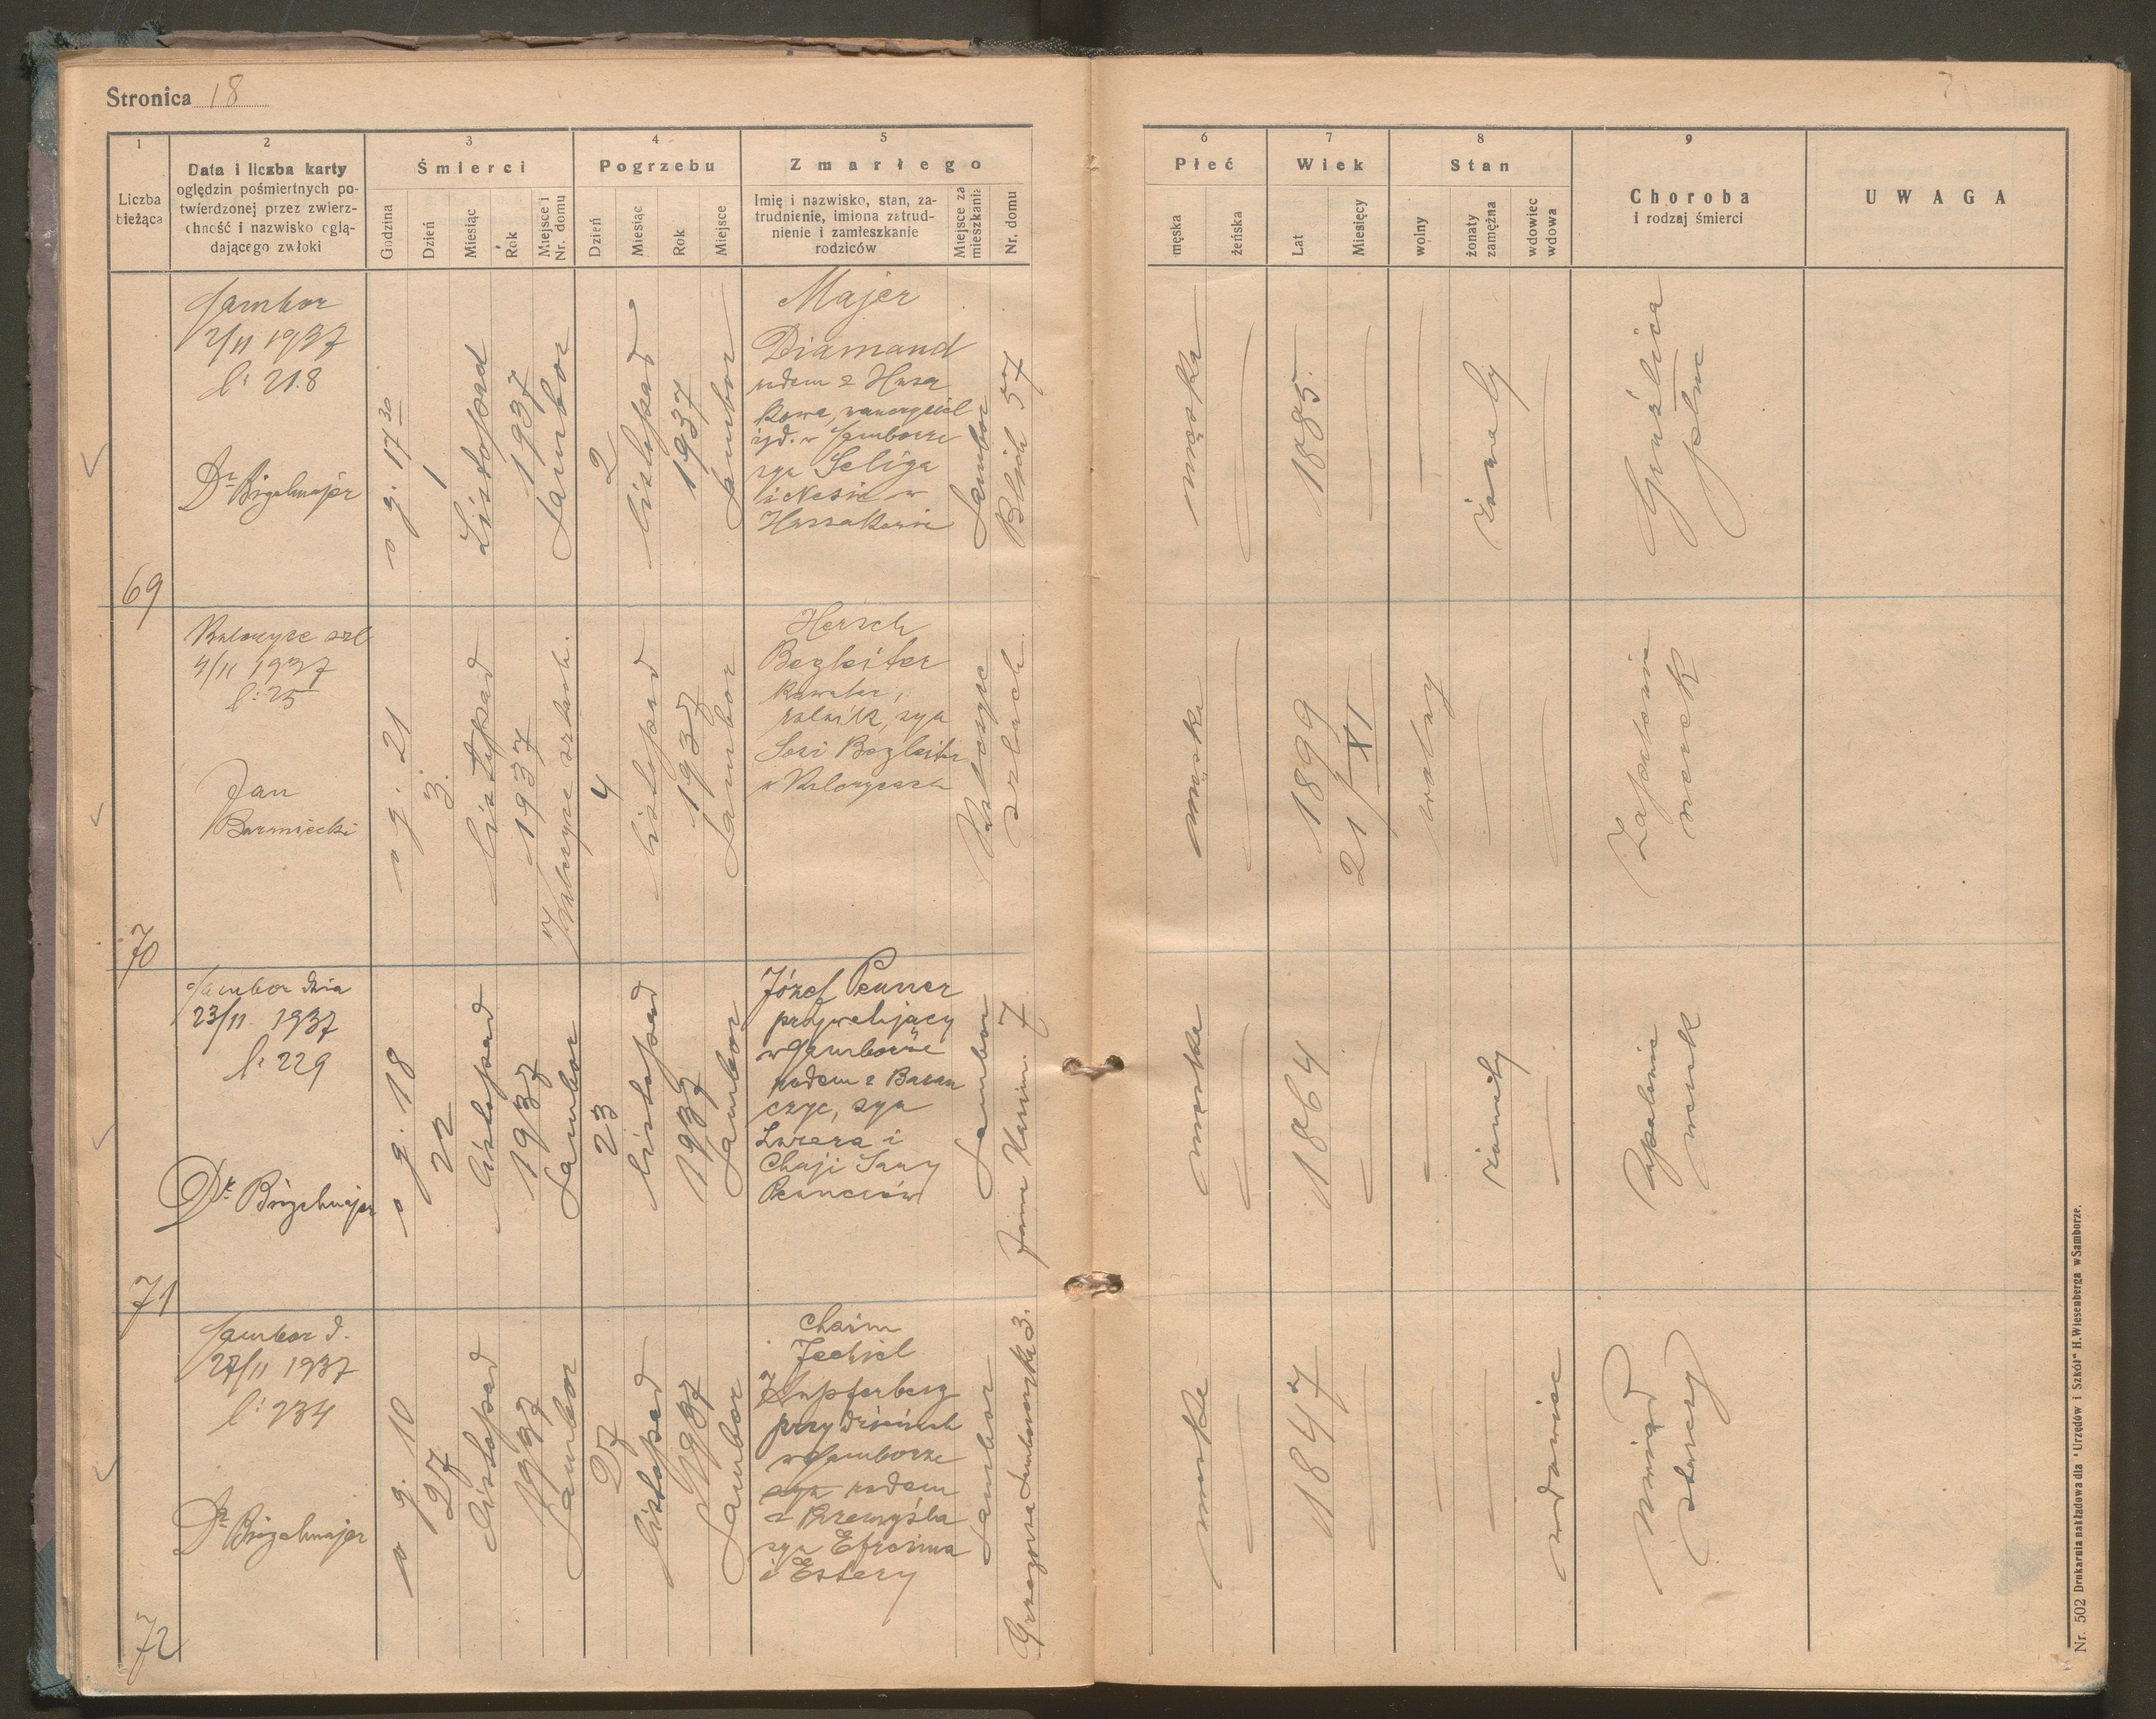 Stronica 18
1
2
3
4
5
6
7
8
9
Liczba
bieżąca
Data i liczba karty
oględzin pośmiertnych po-
twierdzonej przez zwierz-
chność i nazwisko oglą-
dającego zwłoki
Śmierci
Godzina
Dzień
Miesiąc
Rok
Miejsce i
Nr. domu
Pogrzebu
Dzień
Miesiąc
Rok
Miejsce
Zmarłego
Imię i nazwisko, stan, za-
trudnienie, imiona zatrud-
nienie i zamieszkanie
rodziców
Miejsce za
mieszkania
Nr. domu
Płeć
męska
żeńska
Wiek
Lat
Miesięcy
Stan
wolny
żonaty
zamężna
wdowiec
wdowa
Choroba
i rodzaj śmierci
UWAGA
69
Sambor
2/11 1937
l: 218
o g. 17 30
1
Listopad
1937
Sambor
2
listopad
1937
Sambor
Majer
Diamand
rodem z Husa
kowa, nauczyciel
żyd. w Samborze
syn Seliga
i Nesie w
Hussakowie
Sambor
Blich 57
męska
1885
żonaty
Gruźlica
płuc
70
4/11 1937
l: 25
Jan
o g. 21
3.
listopad
1937
4
listopad
1937
Sambor
Hersch
Begleiter
kawaler,
rolnik, syn
Begleiter
męska
1899
21/XI
wolny
Zapalenie
nerek
71
Sambor dnia
23/11 1937
l: 229
o g. 18
22
listopad
1937
Sambor
23
listopad
1937
Sambor
Józef Penner
w Samborze
rodem z Baran
czyc, syn
i
Chaji Sary
Pennerów
Sambor
7
męska
1864
żonaty
Zapalenie
nerek
72
Sambor d.
27/11 1937
l: 234
o g. 10
27
listopad
1937
Sambor
27
listopad
1937
Sambor
Chaim
Jechiel
Kupferberg
przy dzieciach
w Samborze
syn rodem
z Przemyśla
syn Efroima
i Estery
Sambor
3.
męska
1847
wdowiec
Uwiąd
starczy
Nr. 502 Drukarnia nakładowa dla "Urzędów i Szkół" H. Wiesenberga w Samborze.